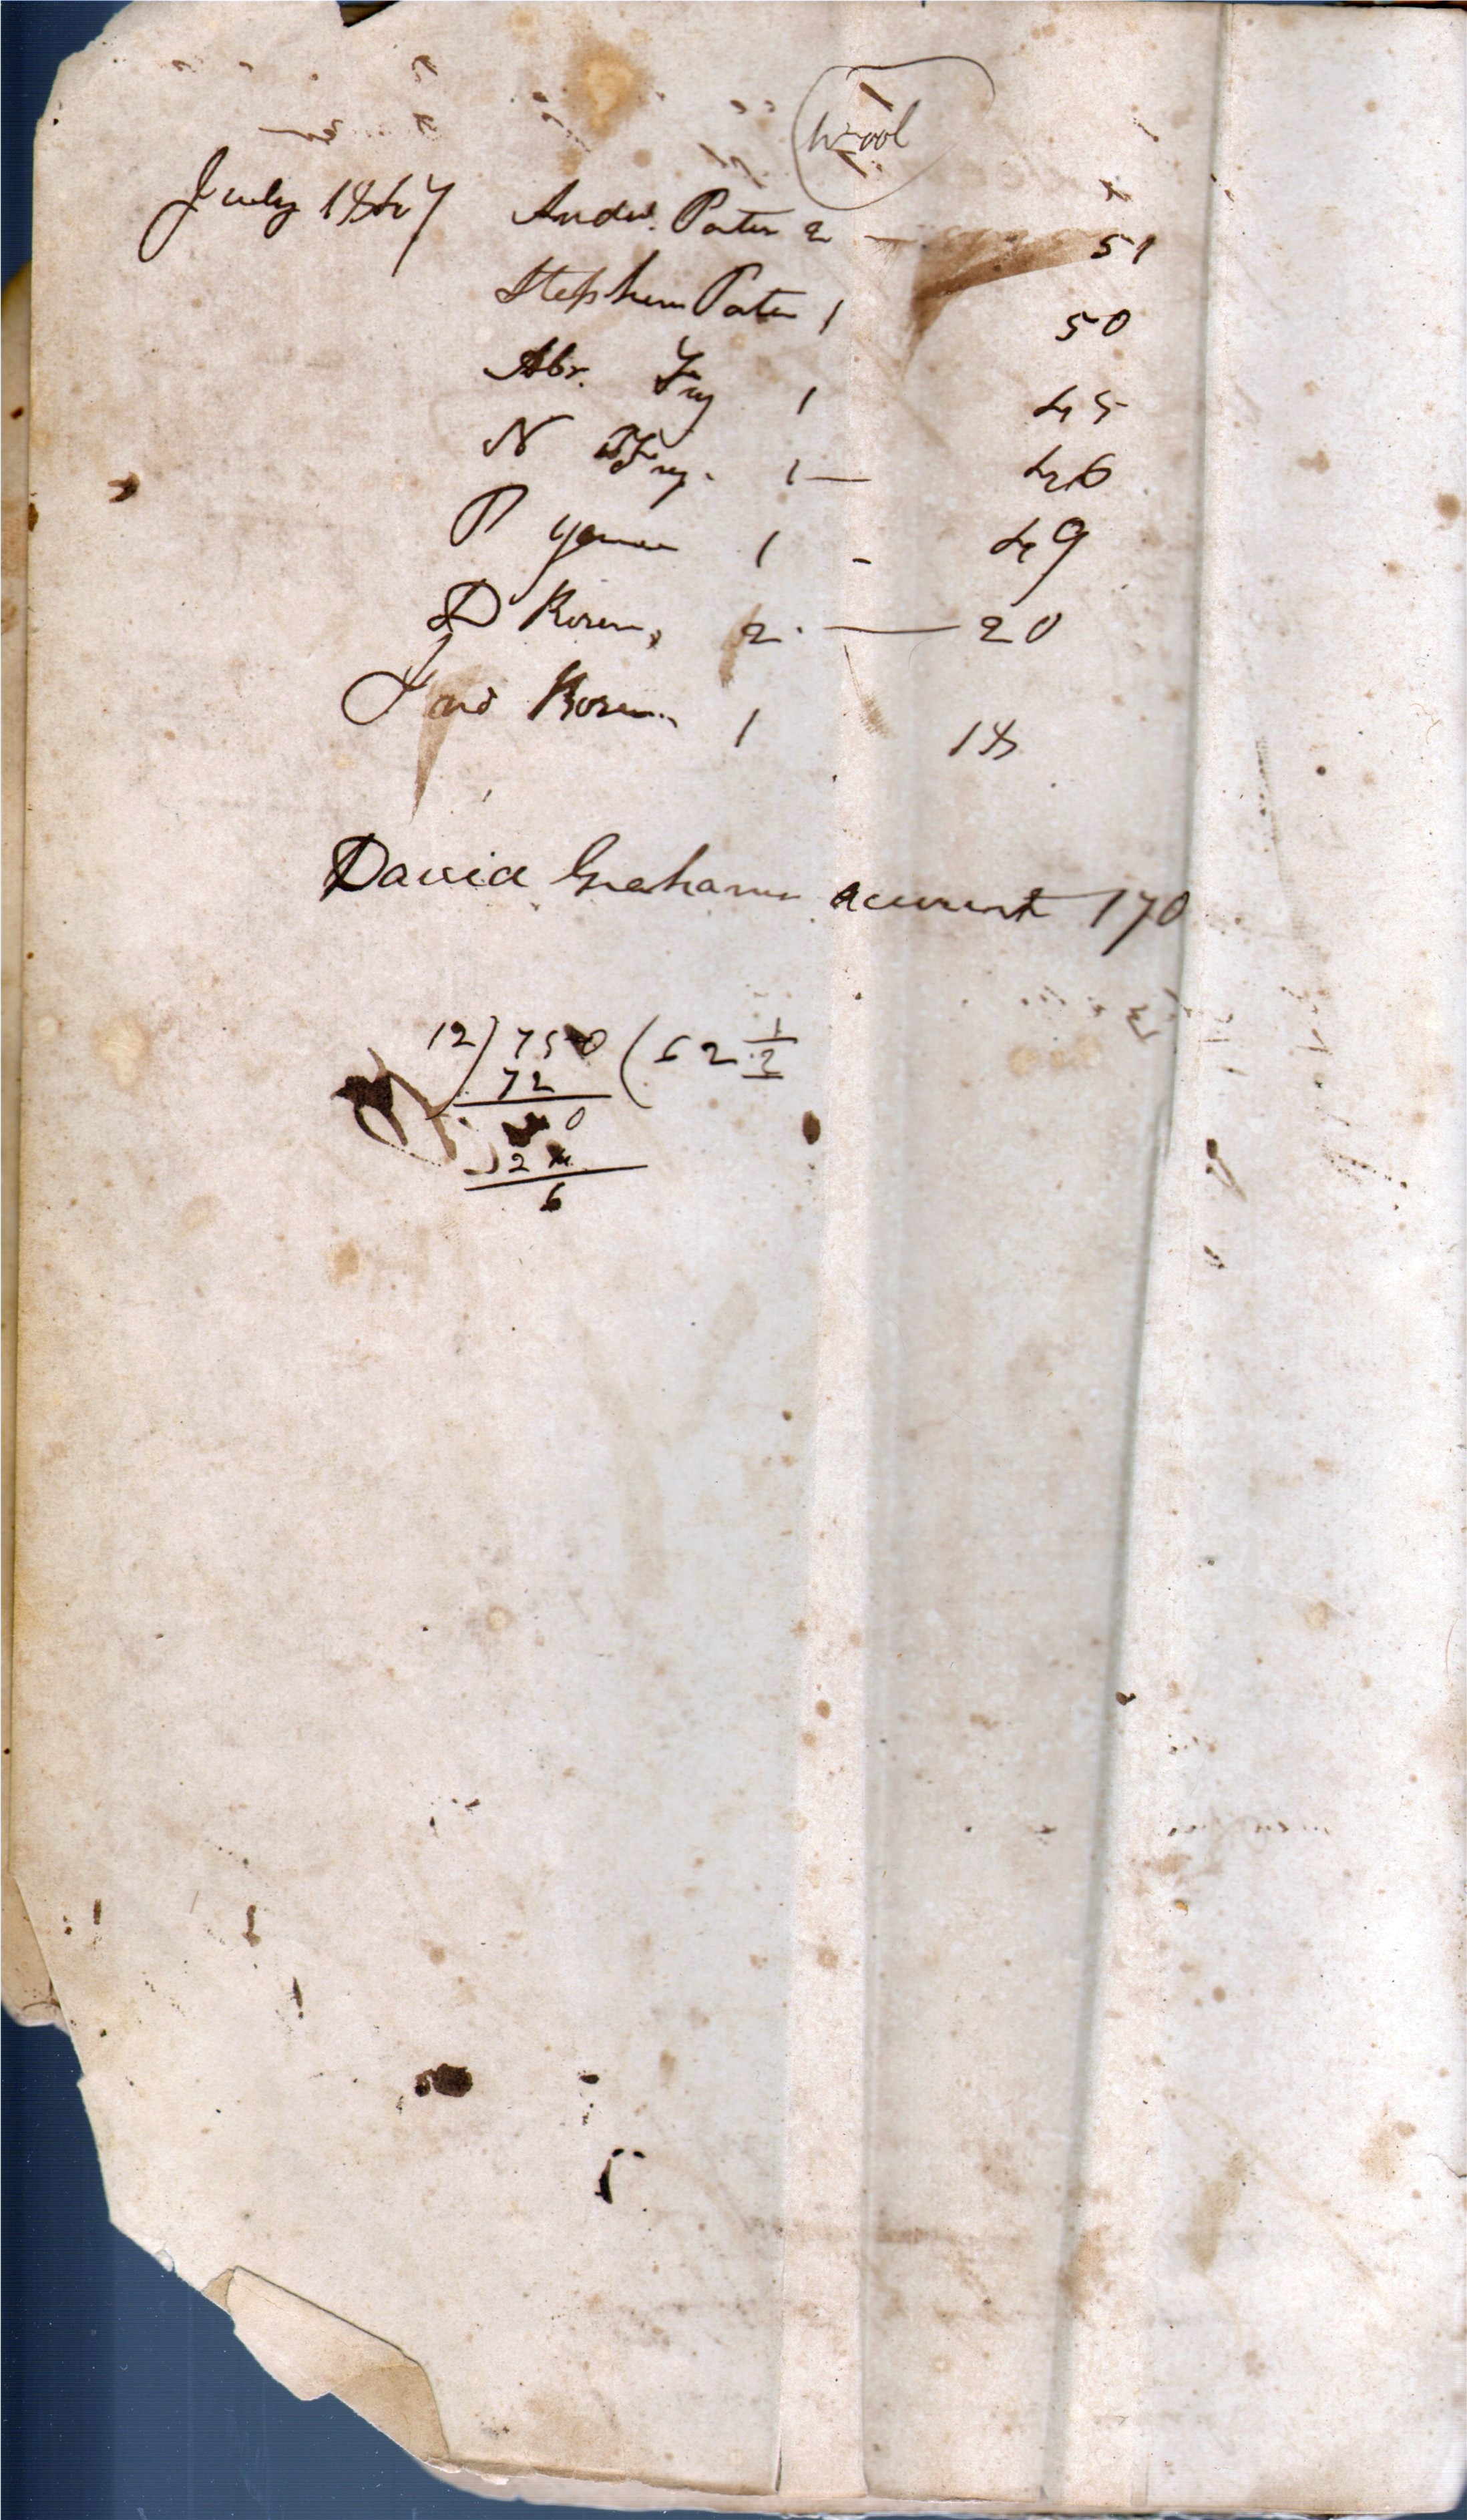 Wool
July 1847 Andw. Porter 2 — 51
Stephen Porter 1 50
Abr. Fry 1 45
N Fry. 1 — 46
P 1 - 49
D Rosen 2. — 20
Rosen 1 18
David Graham account 170
12) 750 (62 1/2
72
30
24
6